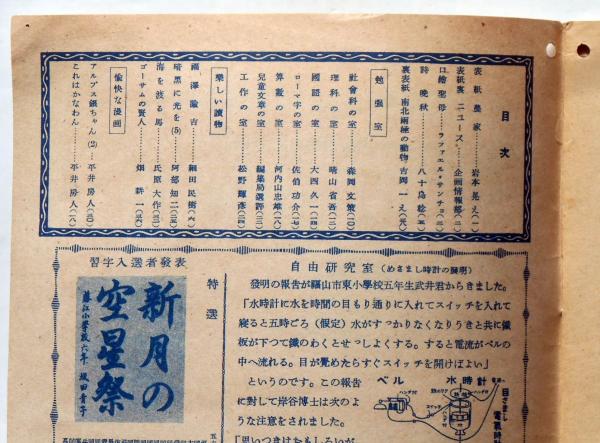 目次
表紙 農家………岩本晃え(一)
表紙裏 ニュース………企画情報部(二)
口繪 聖母………ラファエル・サンチョ(三)
詩 晩秋………八十島稔(五)
裏表紙 南北両極の動物 吉岡一え(三八)
勉强室
社會科の室………森岡文策(一〇)
理科の室………晴山省吾(三)
國語の室………大西久一(四)
ローマ字の室………佐伯功介(七)
算數の室………河内山忠雄(八)
兒童文章の室………編集局選評(三)
工作の室………松野輝彦(四)
樂しい讀物
福澤諭吉………細田民樹(六)
暗黑に光を(5)………阿部知二(三)
海を渡る馬………氏原大作(三)
ゴーサムの賢人………畑耕一(三)
愉快な漫画
アルプス銀ちゃん(2)…平井房人(三)
これはかなわん………平井房人(六)
自由研究室(めざまし時計の發明)
發明の報告が福山市東小學校五年生武井君からきました。
「水時計に水を時間の目もり通りに入れてスイッチを入れて
寢ると五時ごろ(假定)水がすっかりなくなりうきと共に鐵
板が下つて鐵のわくとせつしよくする。すると電流がベルの
中へ流れる。目が覺めたらすぐスイッチを開けばよい」
というのです。この報告
に對して岸谷博士は次のよ
うな注意をされました。
「思いつきはたもしろいが
ベル
水時計
目さまし
電氣時計
習字入選者發表
特選
新月の
空星祭
藤江小學校六年 坂田貴子